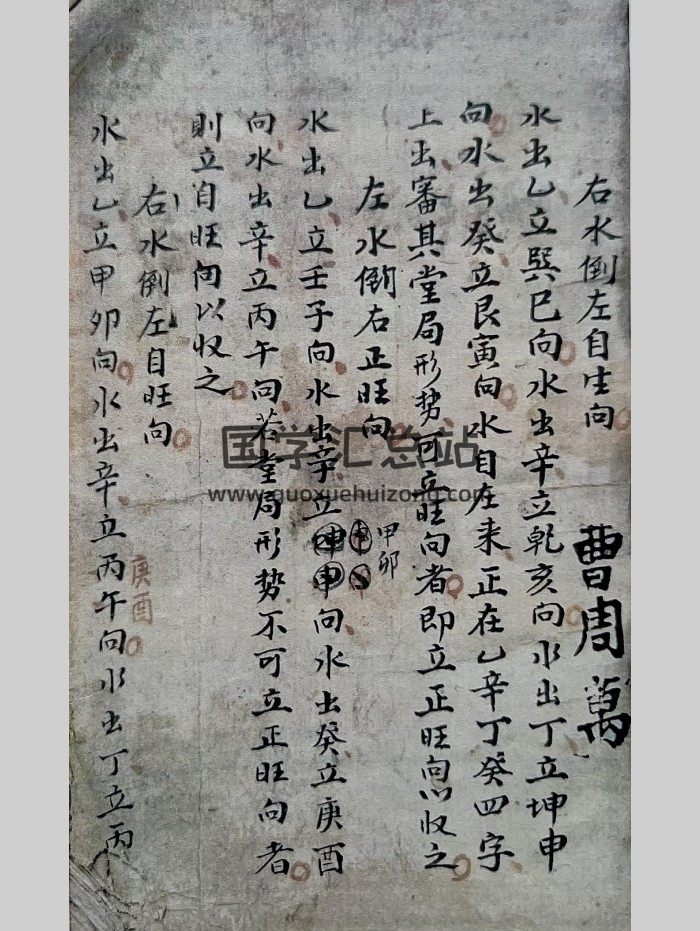 右水倒左自生向
曹周萬
水出乙立巽巳向水出辛立乾亥向水出丁立坤申
向水出癸立艮寅向水自左来正在乙辛丁癸四字
上出審其堂局形势可立旺向者即立正旺向以收之
左水倒右正旺向
甲卯
水出乙立壬子向水出辛立坤申向水出癸立庚酉
向水出辛立丙午向若堂局形势不可立正旺向者
則立自旺向以收之
右水倒左自旺向
庚酉
水出乙立甲卯向水出辛立丙午向水出丁立丙
国学汇总站
www.guoxuehuizong.com